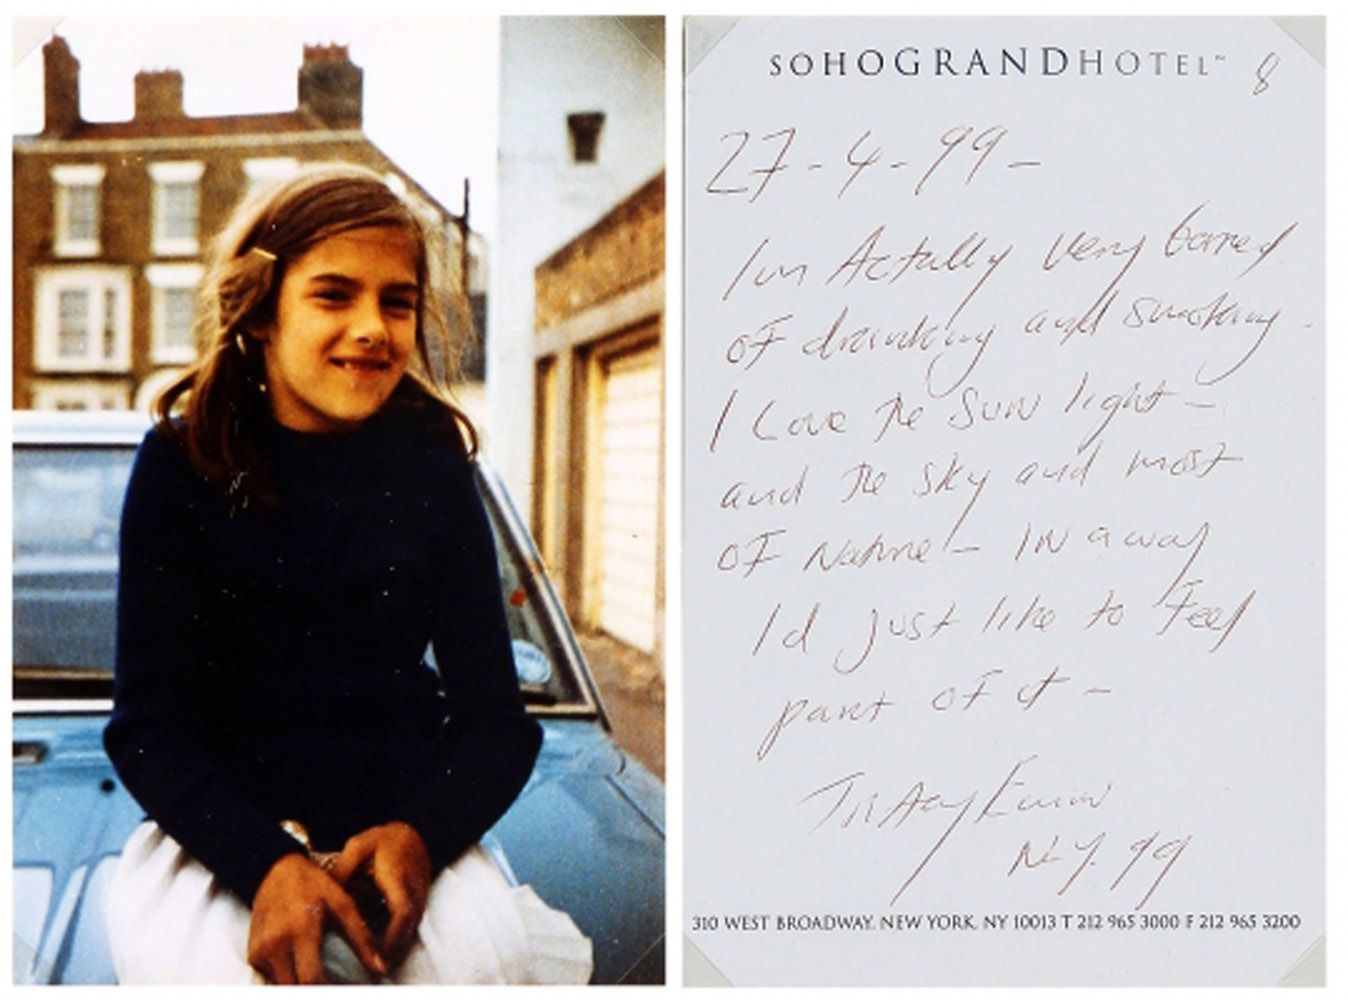 SOHOGRANDHOTEL™ 8
27-4-99-
Im Actully very borred
OF drinking and smoking -
I Love the SUN light -
and the sky and most
OF Nature - IN a way
Id just like to Feel
part OF it -
Tracey Emin
N.Y. 99
310 WEST BROADWAY, NEW YORK, NY 10013 T 212 965 3000 F 212 965 3200